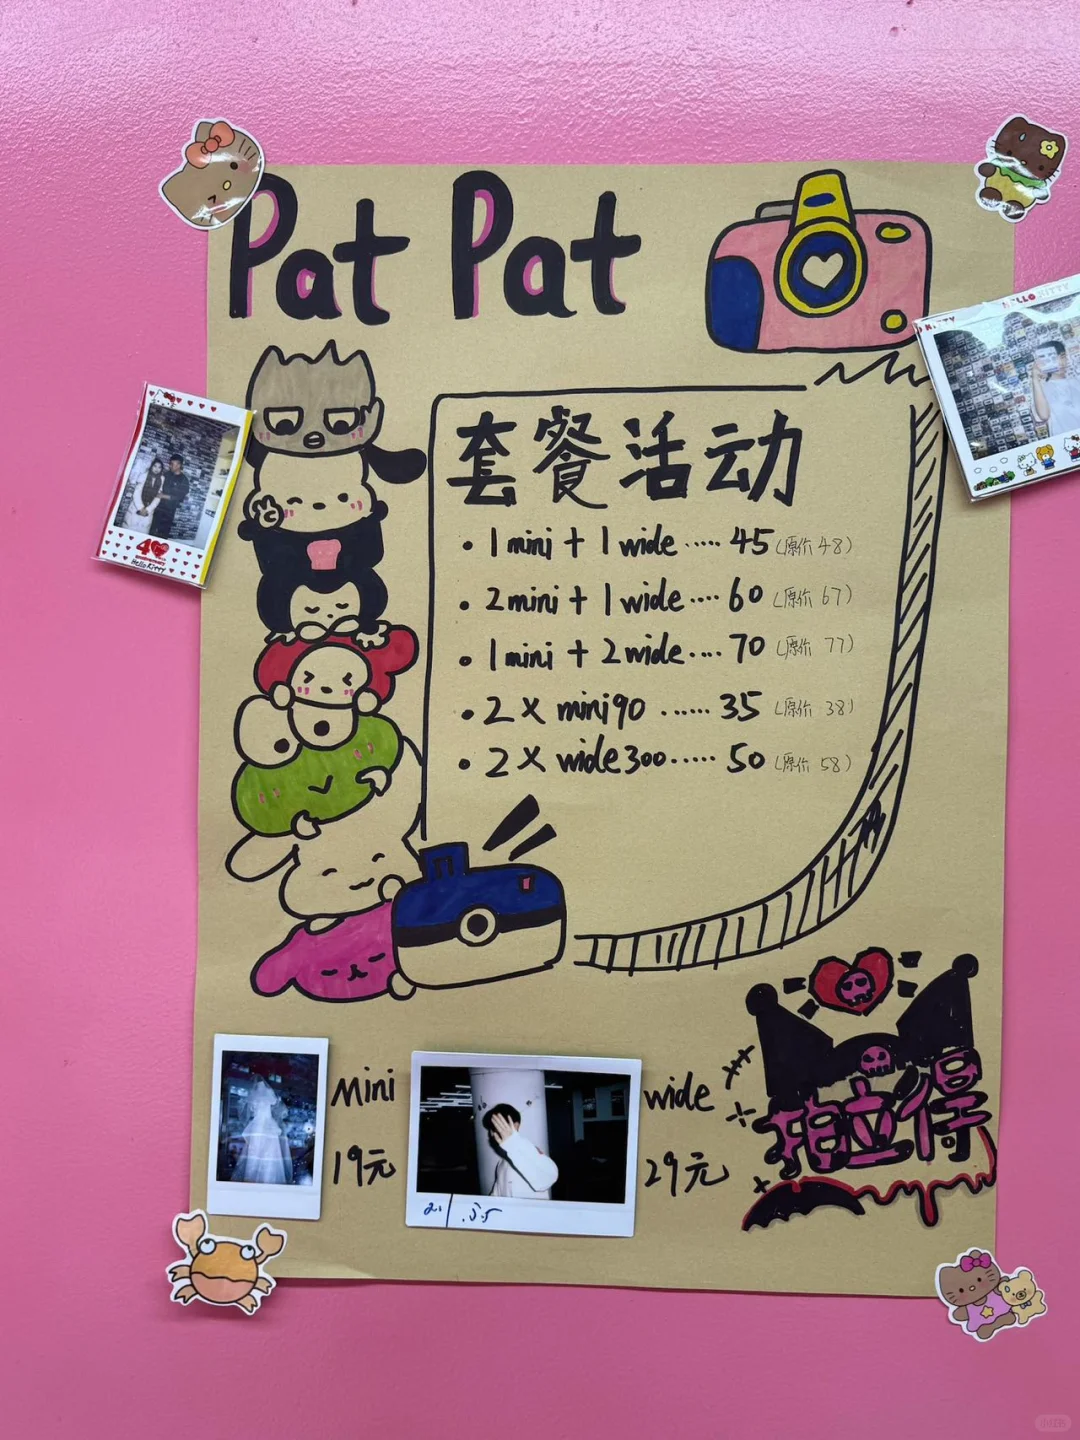 Pat Pat
HELLO KITTY
套餐活动
• 1 mini + 1 wide ..... 45 (原价 48)
• 2 mini + 1 wide .... 60 (原价 67)
• 1 mini + 2 wide .... 70 (原价 77)
• 2 X mini90 ...... 35 (原价 38)
• 2 X wide300 ..... 50 (原价 58)
Hello Kitty
mini
19元
wide
29元
拍立得
小红书